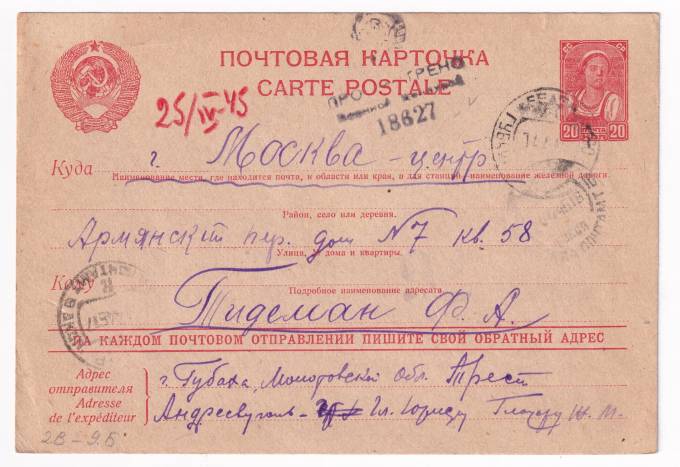 ПОЧТОВАЯ КАРТОЧКА
CARTE POSTALE
ПРОСМОТРЕНО
Военной Цензурой
18627
25/IV-45
СС СР
20 20
Куда г. Москва - центр
Наименование места, где находится почта, и области или края, а для станций - наименование железной дороги
Район, село или деревня.
Армянский пер. дом №7 кв. 58
Улица, № дома и квартиры.
Кому
Подробное наименование адресата
Тидеман Ф. А.
НА КАЖДОМ ПОЧТОВОМ ОТПРАВЛЕНИИ ПИШИТЕ СВОЙ ОБРАТНЫЙ АДРЕС
Адрес отправителя
Adresse de l'expéditeur
г. Губаха, Молотовской обл. Трест
Андреевуголь - Гл. Юрису
2В-9.Б